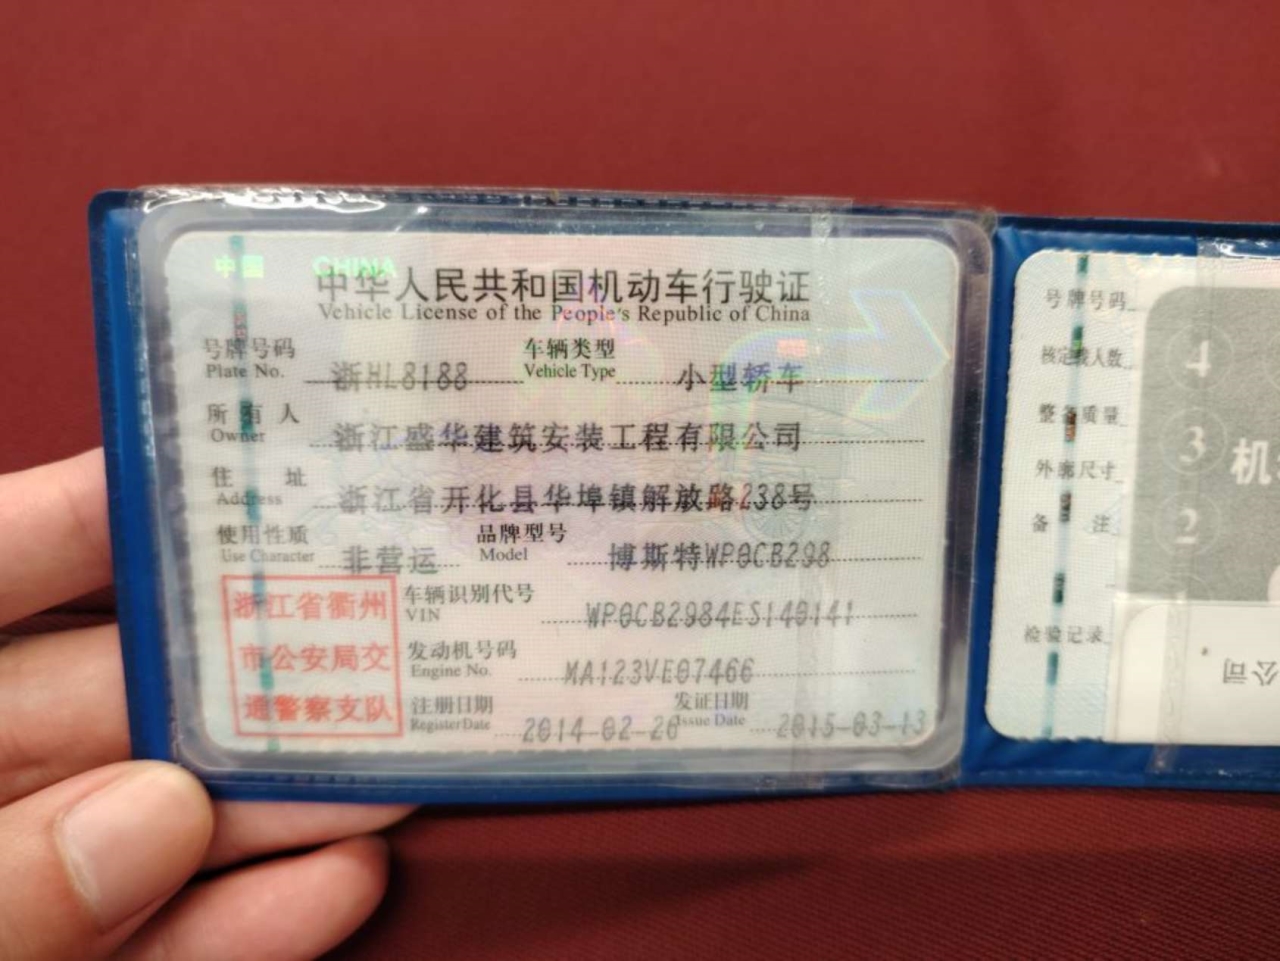 中国 CHINA
中华人民共和国机动车行驶证
Vehicle License of the People's Republic of China
号牌号码 浙HL8188 车辆类型 小型轿车
Plate No. Vehicle Type
所有人 浙江盛华建筑安装工程有限公司
Owner
住址 浙江省开化县华埠镇解放路238号
Address
使用性质 非营运 品牌型号 博斯特WP0CB298
Use Character Model
浙江省衢州
市公安局交
通警察支队
车辆识别代号 WP0CB2984ES140141
VIN
发动机号码 MA123VE07466
Engine No.
注册日期 2014-02-26 发证日期 2015-03-13
Register Date Issue Date
号牌号码
核定载人数
整备质量
外廓尺寸
备注
检验记录
4
3
2
机
公司